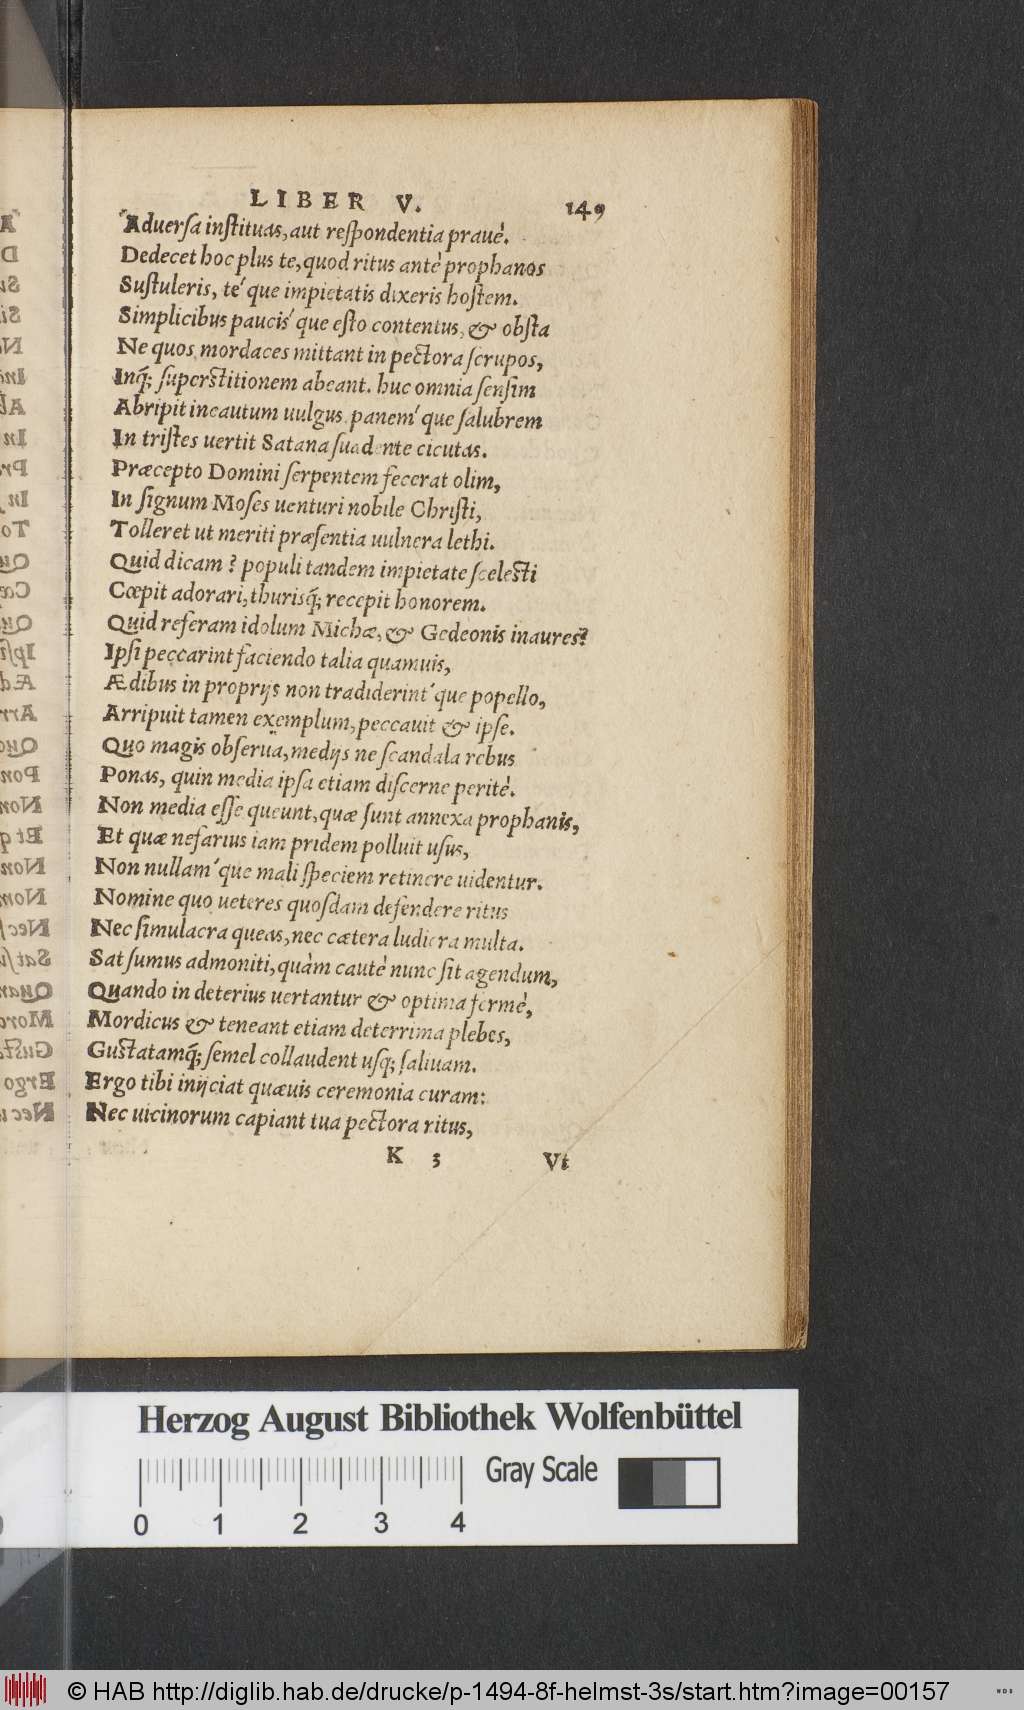 LIBER V. 149
Aduersa instituas, aut respondentia prauè.
Dedecet hoc plus te, quod ritus antè prophanos
Sustuleris, té que impietatis dixeris hostem.
Simplicibus paucis´que esto contentus, & obsta
Ne quos mordaces mittant in pectora scrupos,
Inq́; superstitionem abeant. huc omnia sensim
Abripit incautum uulgus panem´que salubrem
In tristes uertit Satana suadente cicutas.
Præcepto Domini serpentem fecerat olim,
In signum Moses uenturi nobile Christi,
Tolleret ut meriti præsentia uulnera lethi.
Quid dicam? populi tandem impietate scelesti
Cœpit adorari, thurisq́; recepit honorem.
Quid referam idolum Michæ, & Gedeonis inaures?
Ipsi peccarint faciendo talia quamuis,
Ædibus in proprijs non tradiderint´que popello,
Arripuit tamen exemplum, peccauit & ipse.
Quo magis obserua, medijs ne scandala rebus
Ponas, quin media ipsa etiam discerne peritè.
Non media esse queunt, quæ sunt annexa prophanis,
Et quæ nefarius iam pridem polluit usus,
Non nullam´que mali speciem retinere uidentur.
Nomine quo ueteres quosdam defendere ritus
Nec simulacra queas, nec cætera ludicra multa.
Sat sumus admoniti, quàm cautè nunc sit agendum,
Quando in deterius uertantur & optima fermè,
Mordicus & teneant etiam deterrima plebes,
Gustatamq́; semel collaudent usq; saliuam.
Ergo tibi inijciat quæuis ceremonia curam:
Nec uicinorum capiant tua pectora ritus,
K 3 Vt
Herzog August Bibliothek Wolfenbüttel
Gray Scale
0 1 2 3 4
© HAB http://diglib.hab.de/drucke/p-1494-8f-helmst-3s/start.htm?image=00157